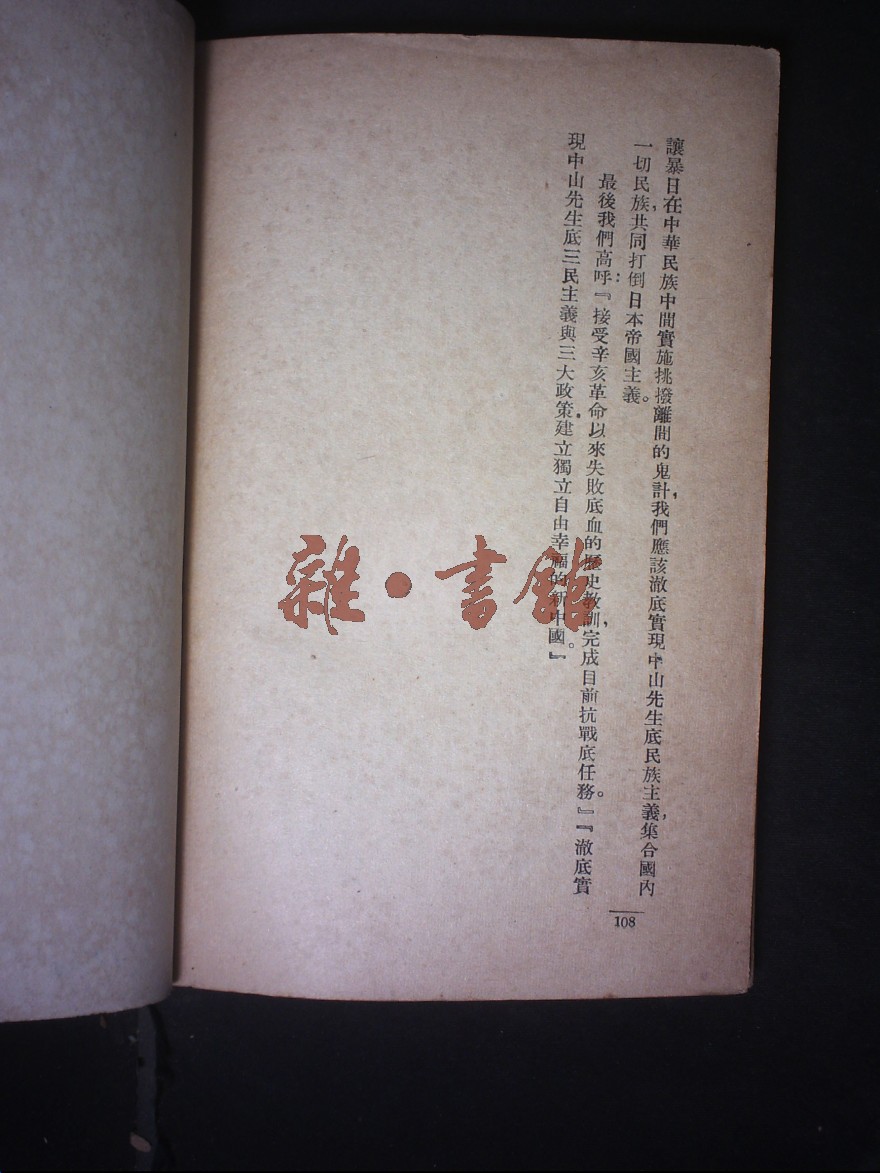 讓暴日在中華民族中間實施挑撥離間的鬼計，我們應該澈底實現中山先生底民族主義，集合國內
一切民族，共同打倒日本帝國主義。
最後我們高呼：『接受辛亥革命以來失敗底血的歷史教訓，完成目前抗戰底任務。』『澈底實
現中山先生底三民主義與三大政策，建立獨立自由幸福的新中國。』
108
雜·書館